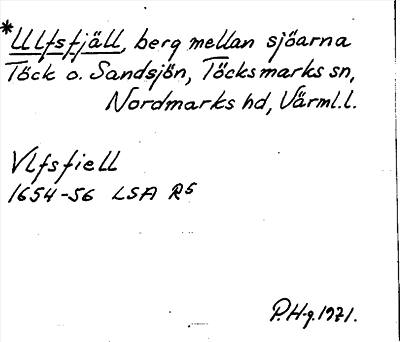 *Ulfsfjäll, berg mellan sjöarna
Töck o. Sandsjön, Töcksmarks sn,
Nordmarks hd, Värml.l.
Vlfsfiell
1654-56 LSA R5
P.H-g.1971.